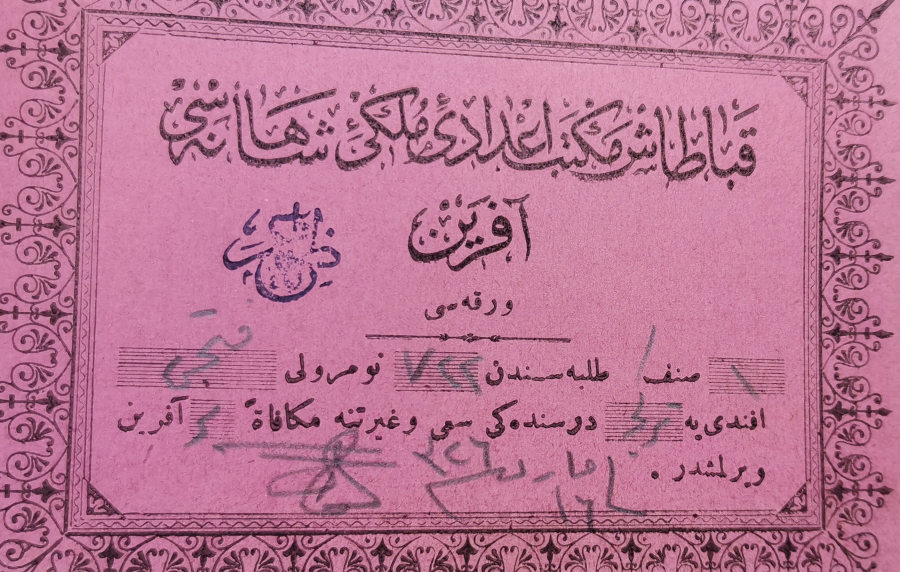 قباطاش مكتب اعدادئ ملكئ شاهانه سی
آفرین
ورقه سی
١ صنف ١ طلبه سندن ٧٢٢ نومرولی فتحی
افندی یه تركی درسنده كی سعی و غیرتنه مكافاةً بر آفرین
ویرلمشدر .
مارت ٣٢٦